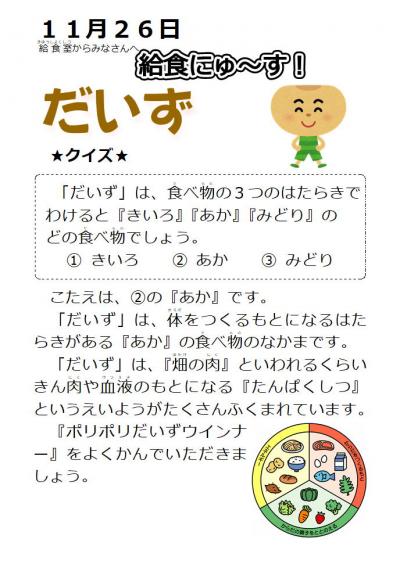 11月26日
給食室からみなさんへ
給食にゅ～す！
だいず
★クイズ★
「だいず」は、食べ物の３つのはたらきで
わけると『きいろ』『あか』『みどり』の
どの食べ物でしょう。
① きいろ　② あか　③ みどり
こたえは、②の『あか』です。
「だいず」は、体をつくるもとになるはた
らきがある『あか』の食べ物のなかまです。
「だいず」は、『畑の肉』といわれるくらい
きん肉や血液のもとになる『たんぱくしつ』
というえいようがたくさんふくまれています。
『ポリポリだいずウインナ
ー』をよくかんでいただきま
しょう。